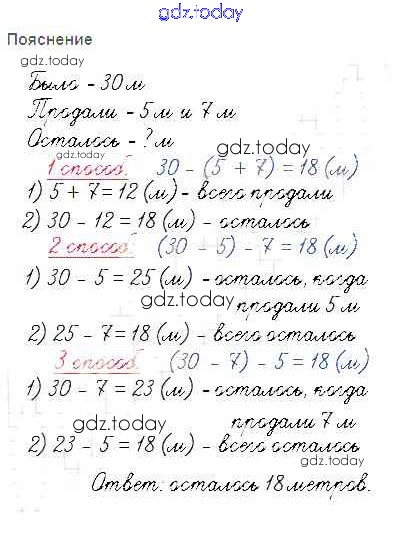 gdz.today
Пояснение
gdz.today
Было - 30 м
Продали - 5 м и 7 м
Осталось - ? м
gdz.today
gdz.today
1 способ: 30 - (5 + 7) = 18 (м)
1) 5 + 7 = 12 (м) - всего продали
2) 30 - 12 = 18 (м) - осталось
2 способ: (30 - 5) - 7 = 18 (м)
1) 30 - 5 = 25 (м) - осталось, когда
gdz.today
продали 5 м
2) 25 - 7 = 18 (м) - всего осталось
3 способ: (30 - 7) - 5 = 18 (м)
1) 30 - 7 = 23 (м) - осталось, когда
gdz.today
продали 7 м
2) 23 - 5 = 18 (м) - всего осталось
gdz.today
Ответ: осталось 18 метров.